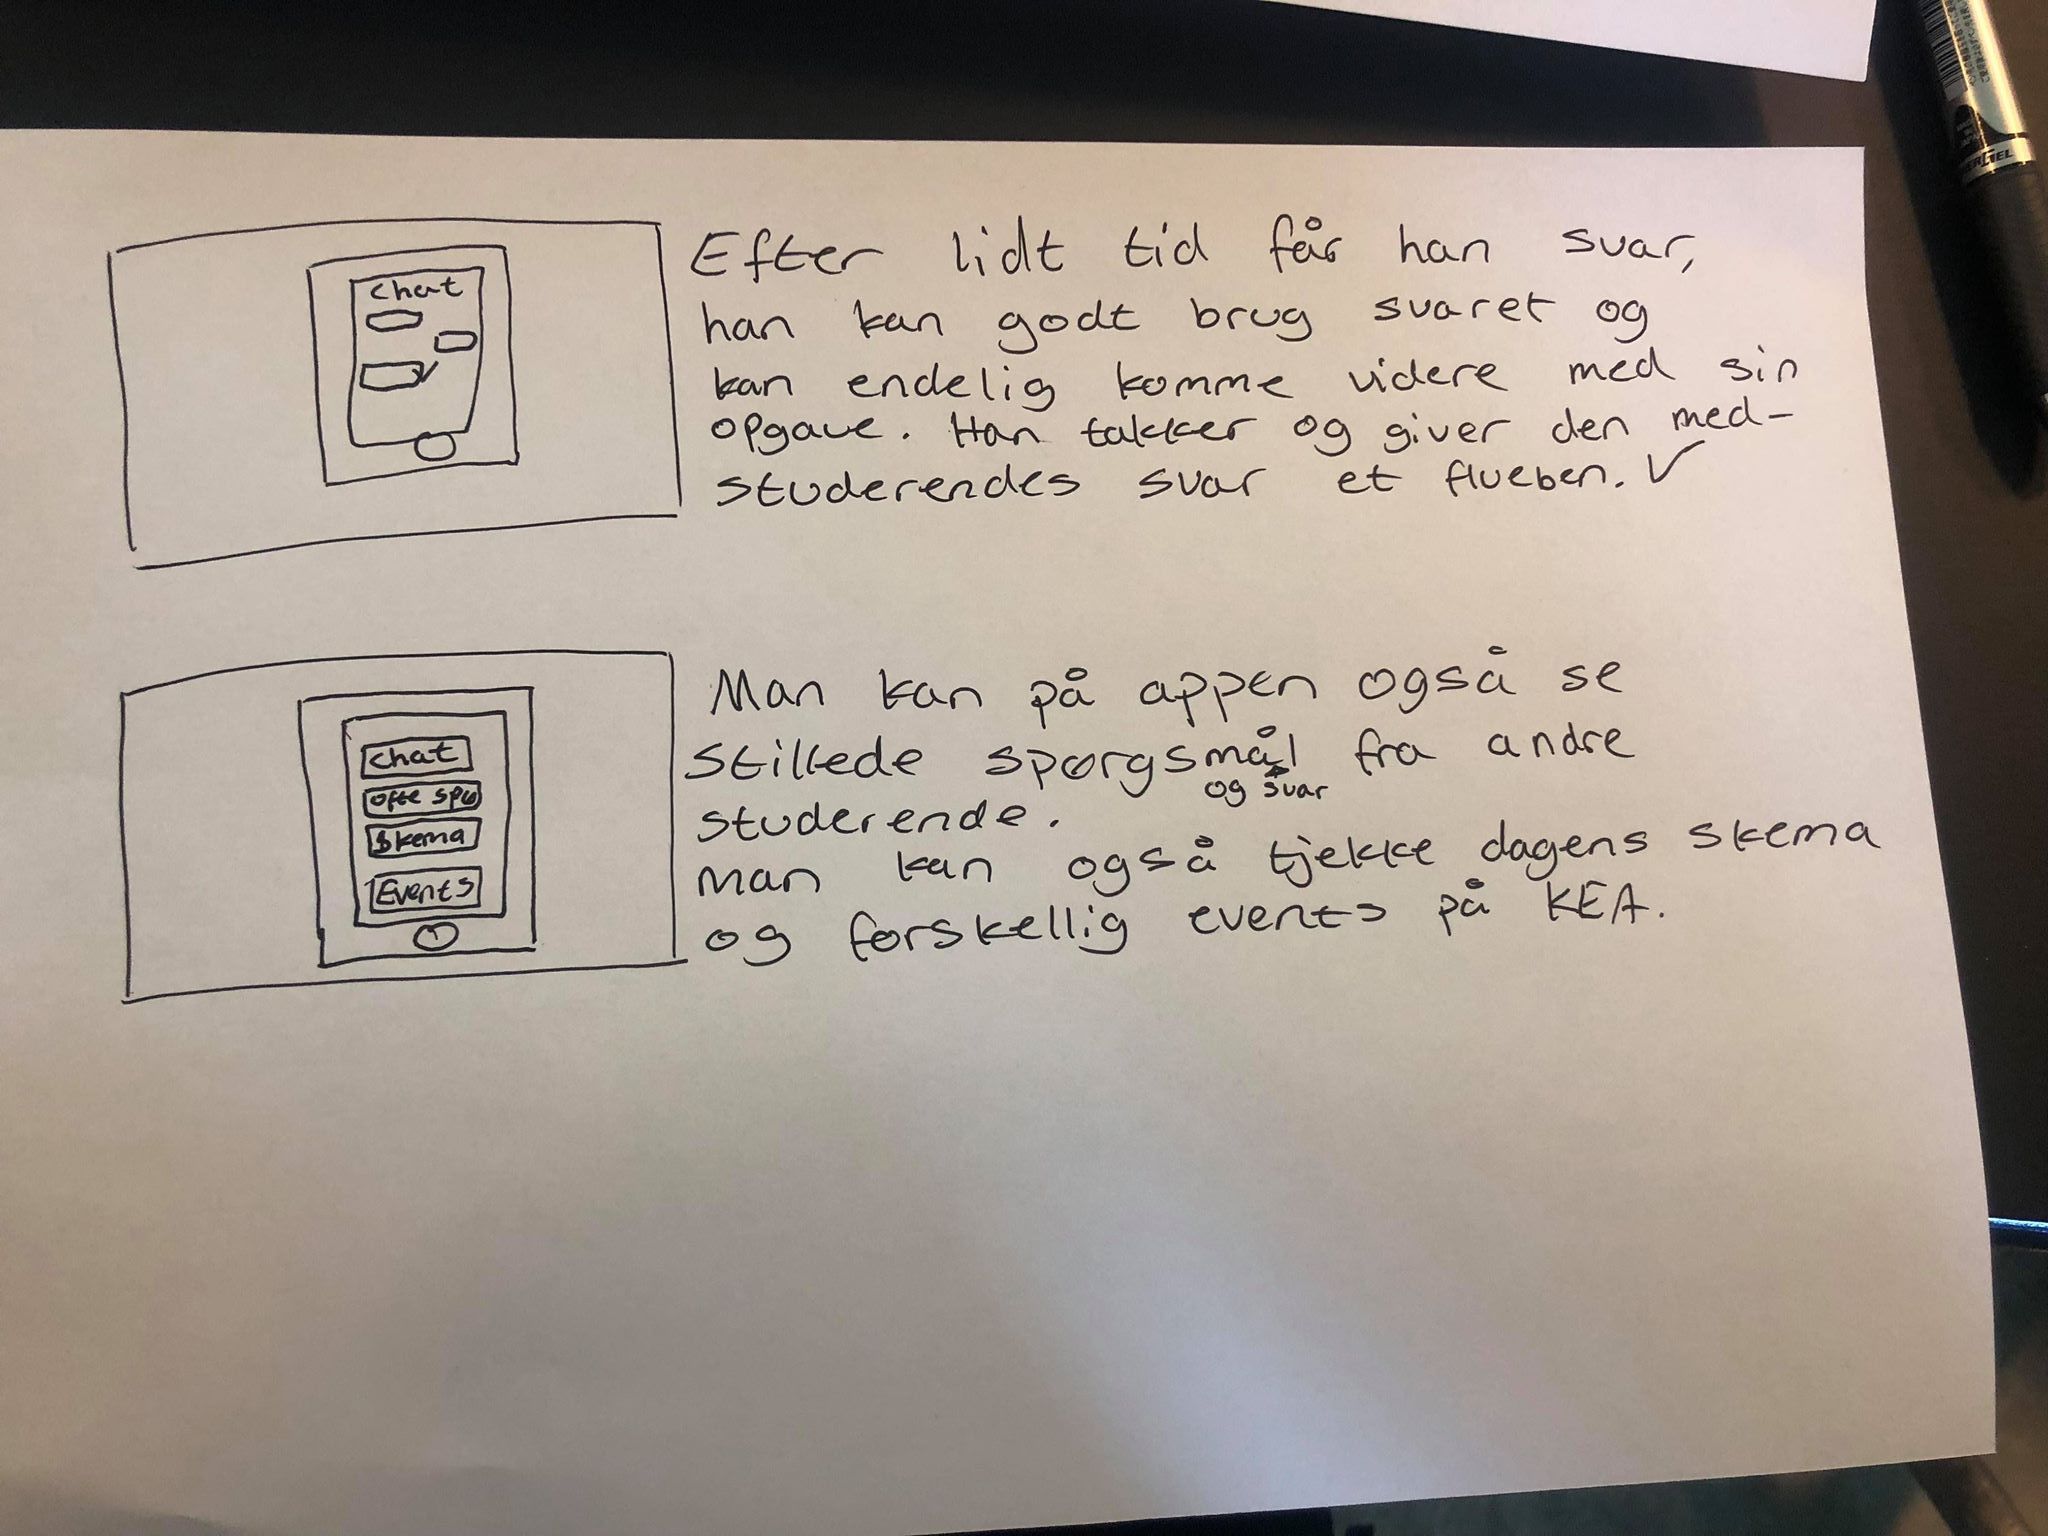 chat
Efter lidt tid får han svar,
han kan godt brug svaret og
kan endelig komme videre med sin
opgave. Han takker og giver den med-
studerendes svar et flueben. ✓
chat
ofte spø
Skema
Events
Man kan på appen også se
stillede spørgsmål fra andre
og svar
studerende.
man kan også tjekke dagens skema
og forskellig events på KEA.